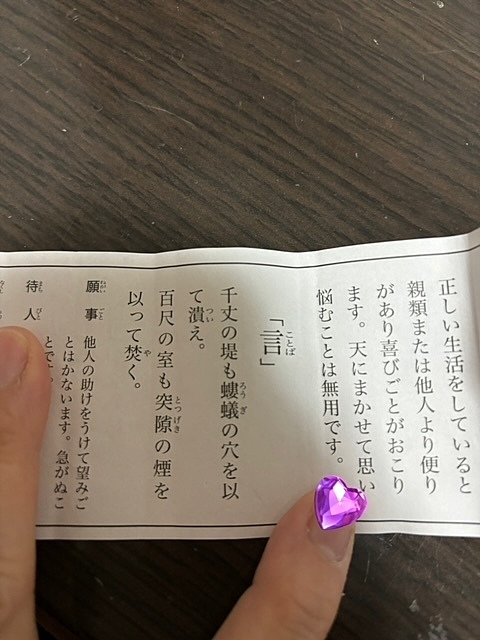 正しい生活をしていると
親類または他人より便り
があり喜びごとがおこり
ます。天にまかせて思い
悩むことは無用です。
「言」
ことば
千丈の堤も螻蟻の穴を以
ろうぎ
て潰え。
つい
百尺の室も突隙の煙を
とつげき
以って焚く。
や
願事
ねがいごと
他人の助けをうけて望みご
とはかないます。急がぬこ
とです。
待人
まちびと